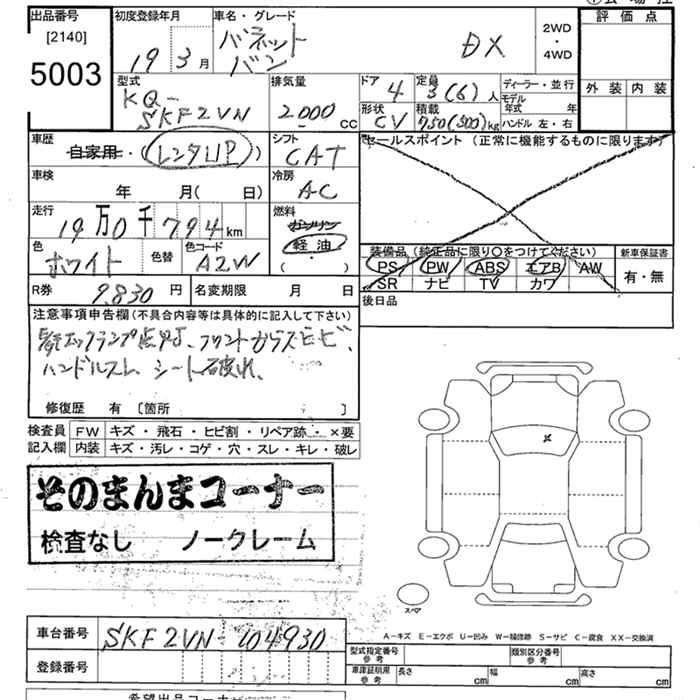 出品番号
[2140]
5003
初度登録年月
19 3月
車名・グレード
バネットバン
DX
2WD
・
4WD
評価点
外装 内装
型式
KQ-
SKF2VN
排気量
2000 cc
ドア 4
定員 3(6)人
形状 CV
積載 750(500)kg
ディーラー・並行
モデル年式 年
ハンドル 左・右
車歴
自家用・(レンタUP)
シフト
CAT
セールスポイント (正常に機能するものに限ります)
車検
年 月( 日)
冷房
AC
走行
19万0千794km
燃料
ガソリン
軽油
( ・ )
色
ホワイト
色替
色コード
A2W
装備品 (純正品に限り〇をつけてください)
PS PW ABS エアB AW
SR ナビ TV カワ
新車保証書
有・無
R券 9,830円
名変期限 月 日
後日品
注意事項申告欄(不具合内容等は具体的に記入して下さい)
ックランプ点灯、フロントガラスヒビ、
ハンドルスレ、シート破れ、
修復歴 有 〔箇所 〕
検査員 FW キズ・飛石・ヒビ割・リペア跡・×要
記入欄 内装 キズ・汚レ・コゲ・穴・スレ・キレ・破レ
そのまんまコーナー
検査なし ノークレーム
スペア
A-キズ E-エクボ U-凹み W-補修跡 S-サビ C-腐食 XX-交換済
車台番号 SKF2VN-104930
登録番号
型式指定番号
参考
類別区分番号
参考
車庫証明用
参考
長さ cm 幅 cm 高さ cm
希望出品コーナー